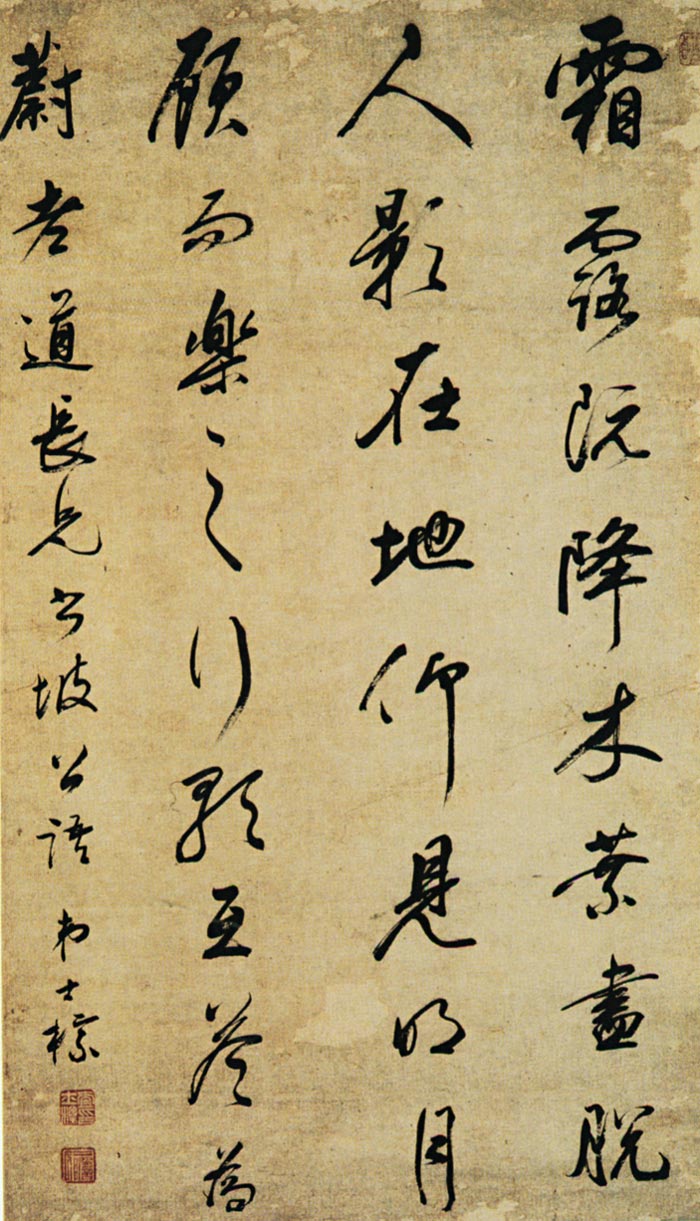 霜露既降木葉盡脫
人影在地仰見明月
顧而樂之行歌互答為
蔚老道長兄書坡公語 弟士標